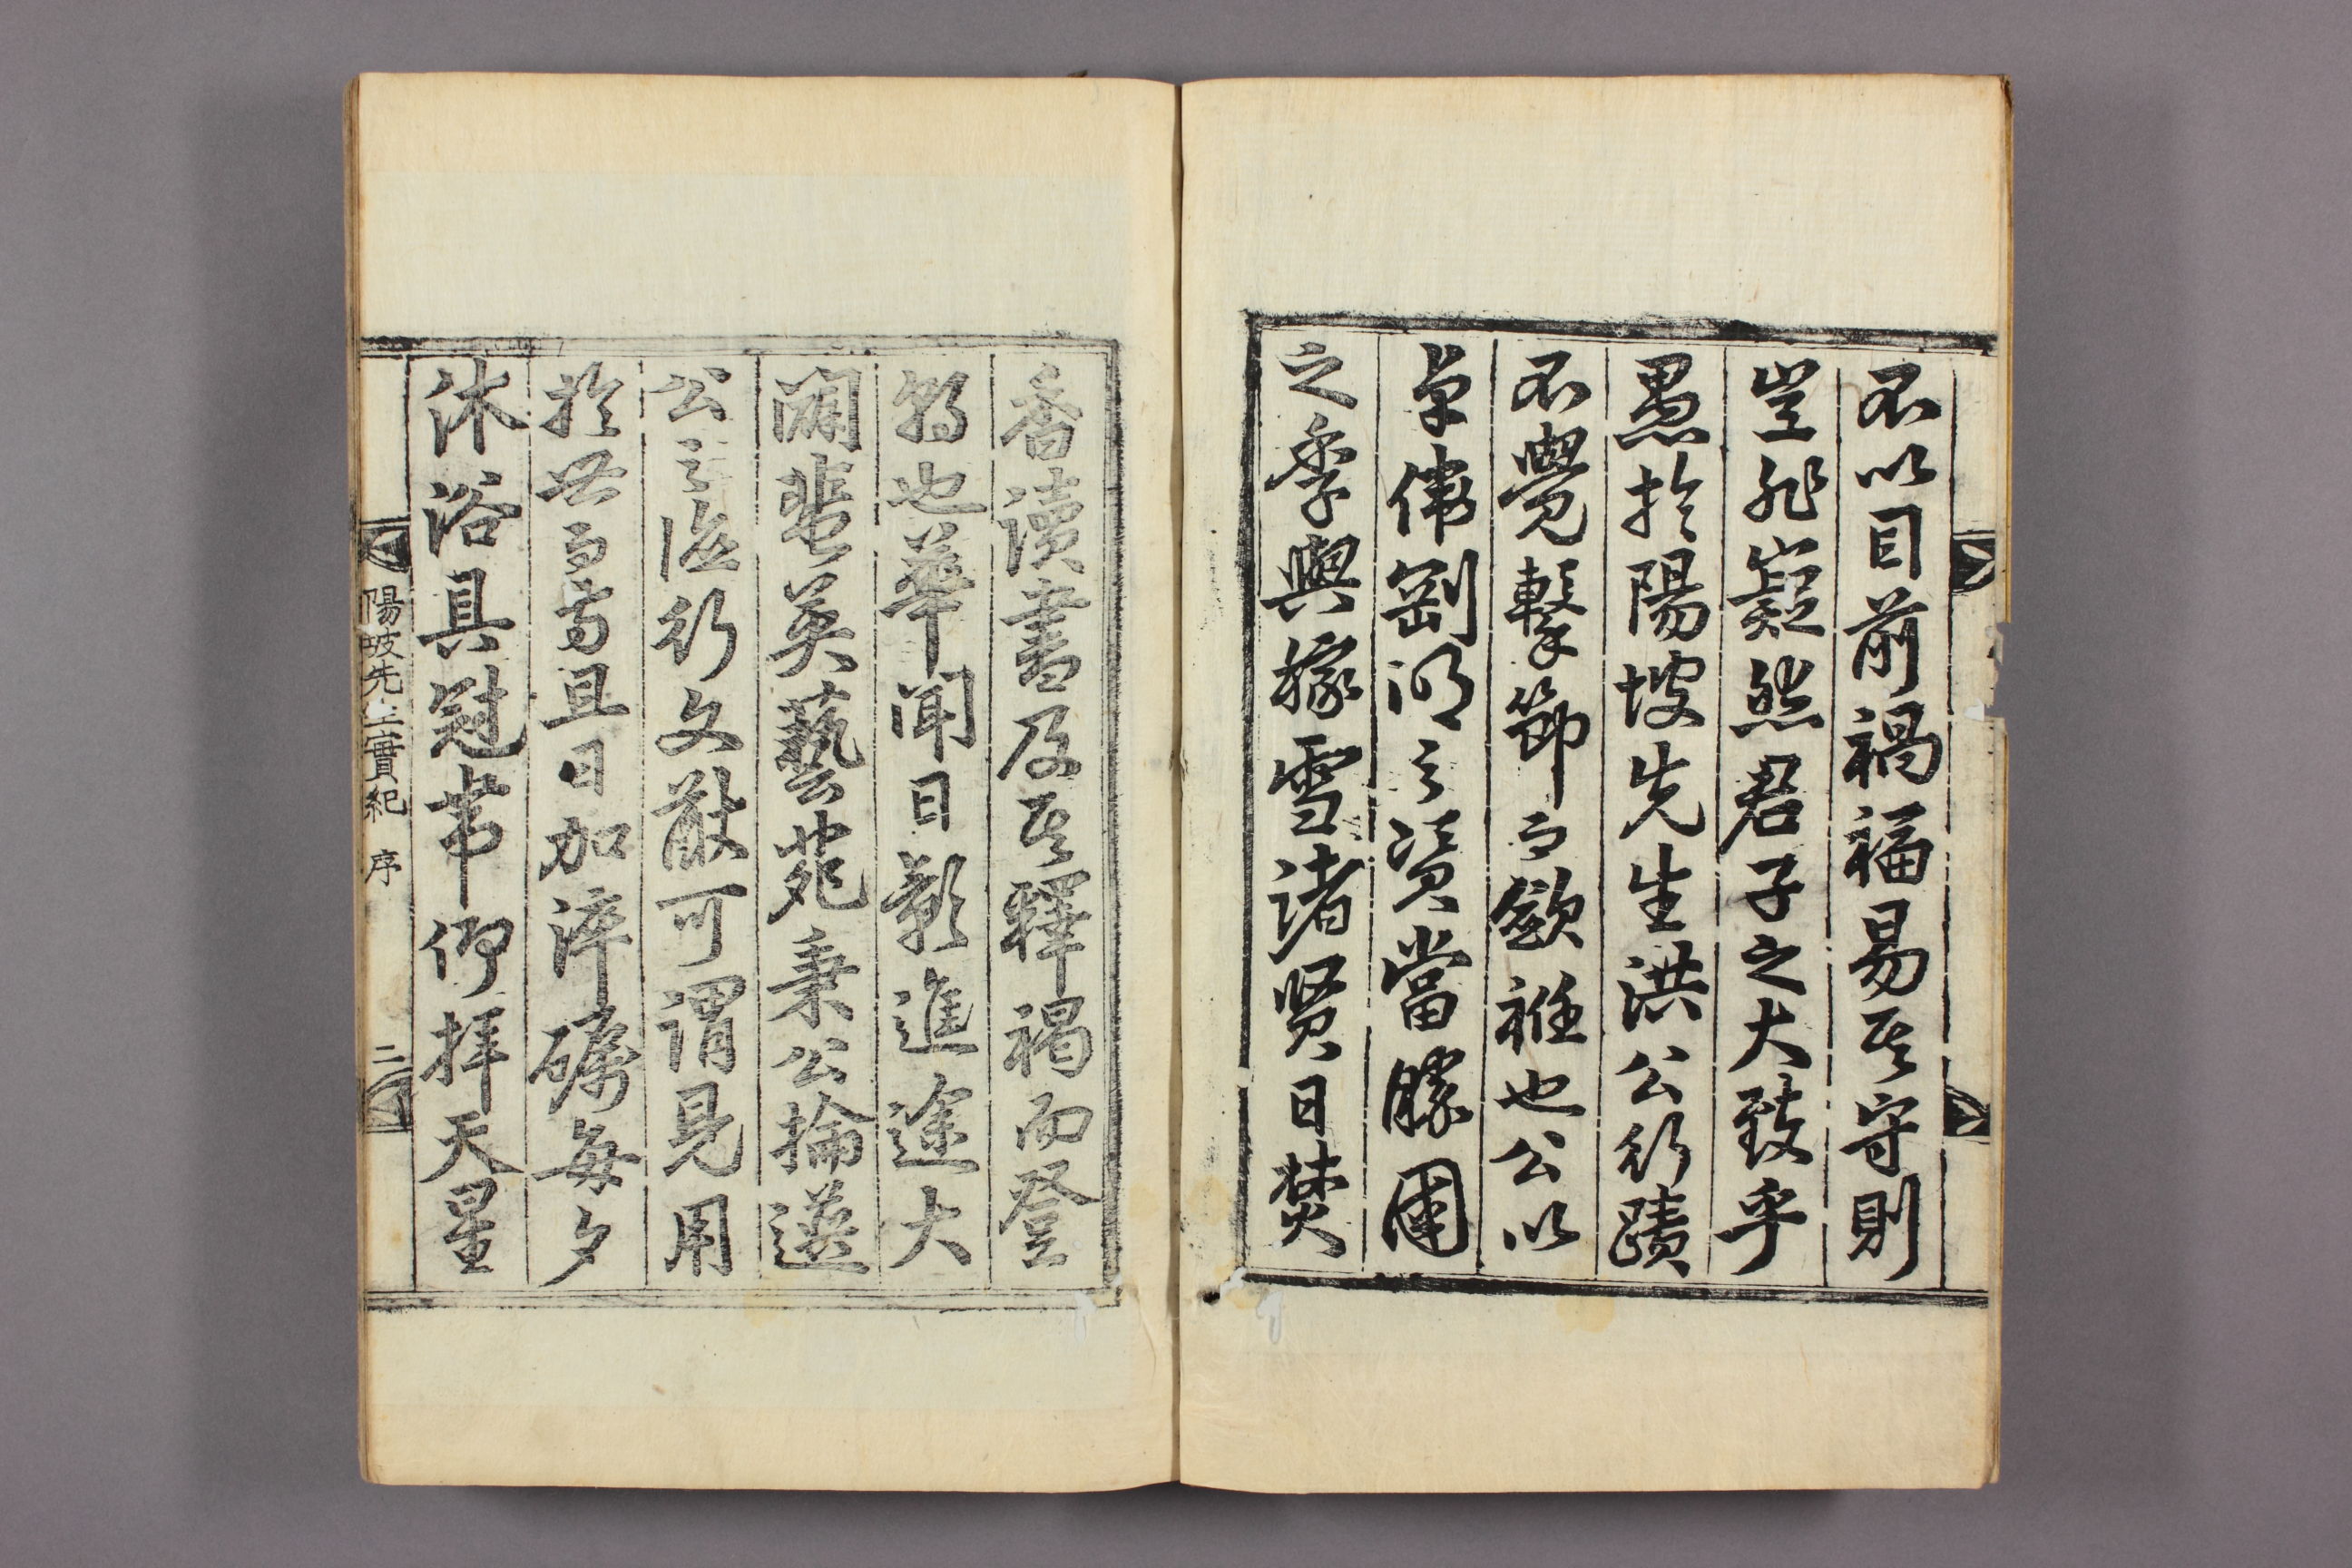 不以目前禍福易其守則
豈非嶷然君子之大致乎
愚於陽坡先生洪公行蹟
不覺擊節而歛衽也公以
卓偉剛明之資當勝國
之季與稼雪諸賢日焚
香讀書及其釋褐而登
朝也華聞日彰進途大
闢蜚英藝苑秉公掄選
公之德行文猷可謂見用
於世而尚且日加淬礪每夕
沐浴具冠帶仰拜天星
陽坡先生實紀 序 二